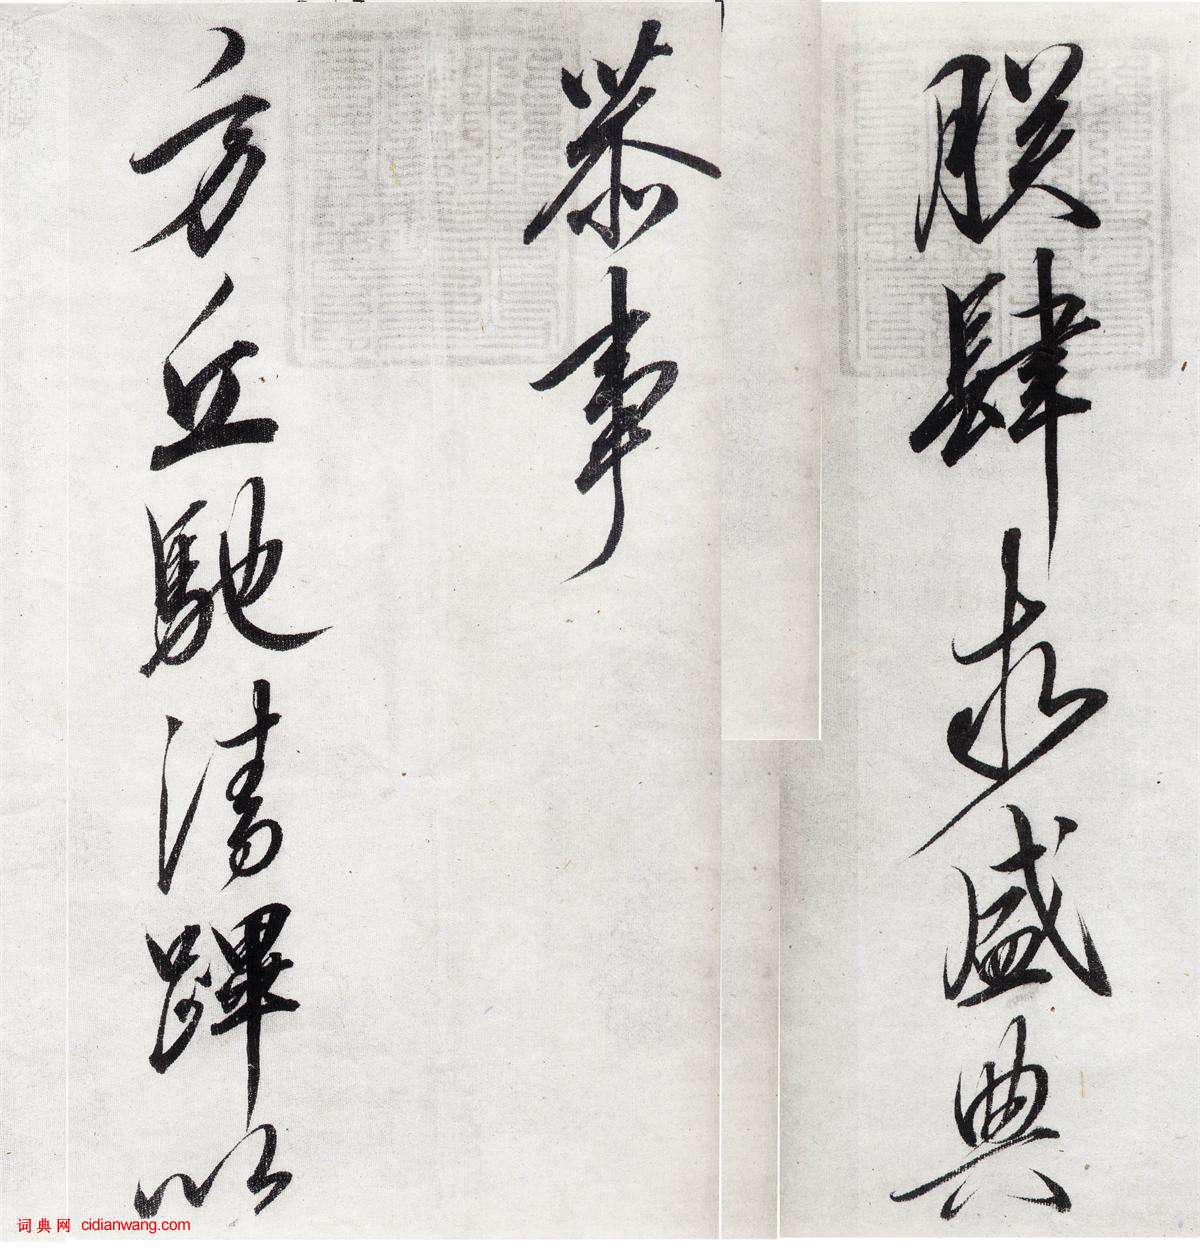 朕肆求盛典
恭事
方丘馳清蹕以
词典网 cidianwang.com